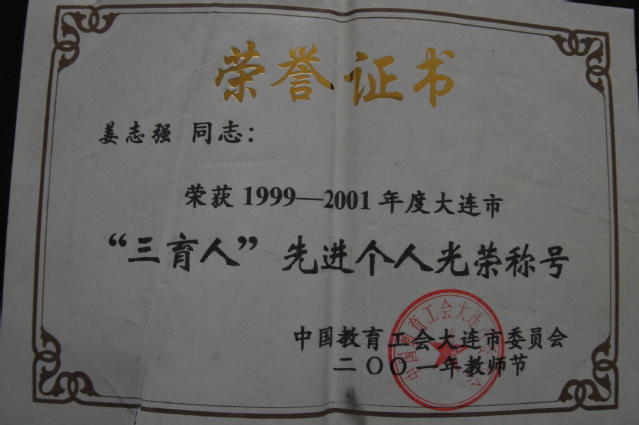 荣誉证书
姜志强 同志：
荣获 1999—2001 年度大连市
“三育人”先进个人光荣称号
中国教育工会大连市委员会
二〇〇一年教师节
中国教育工会大连市委员会